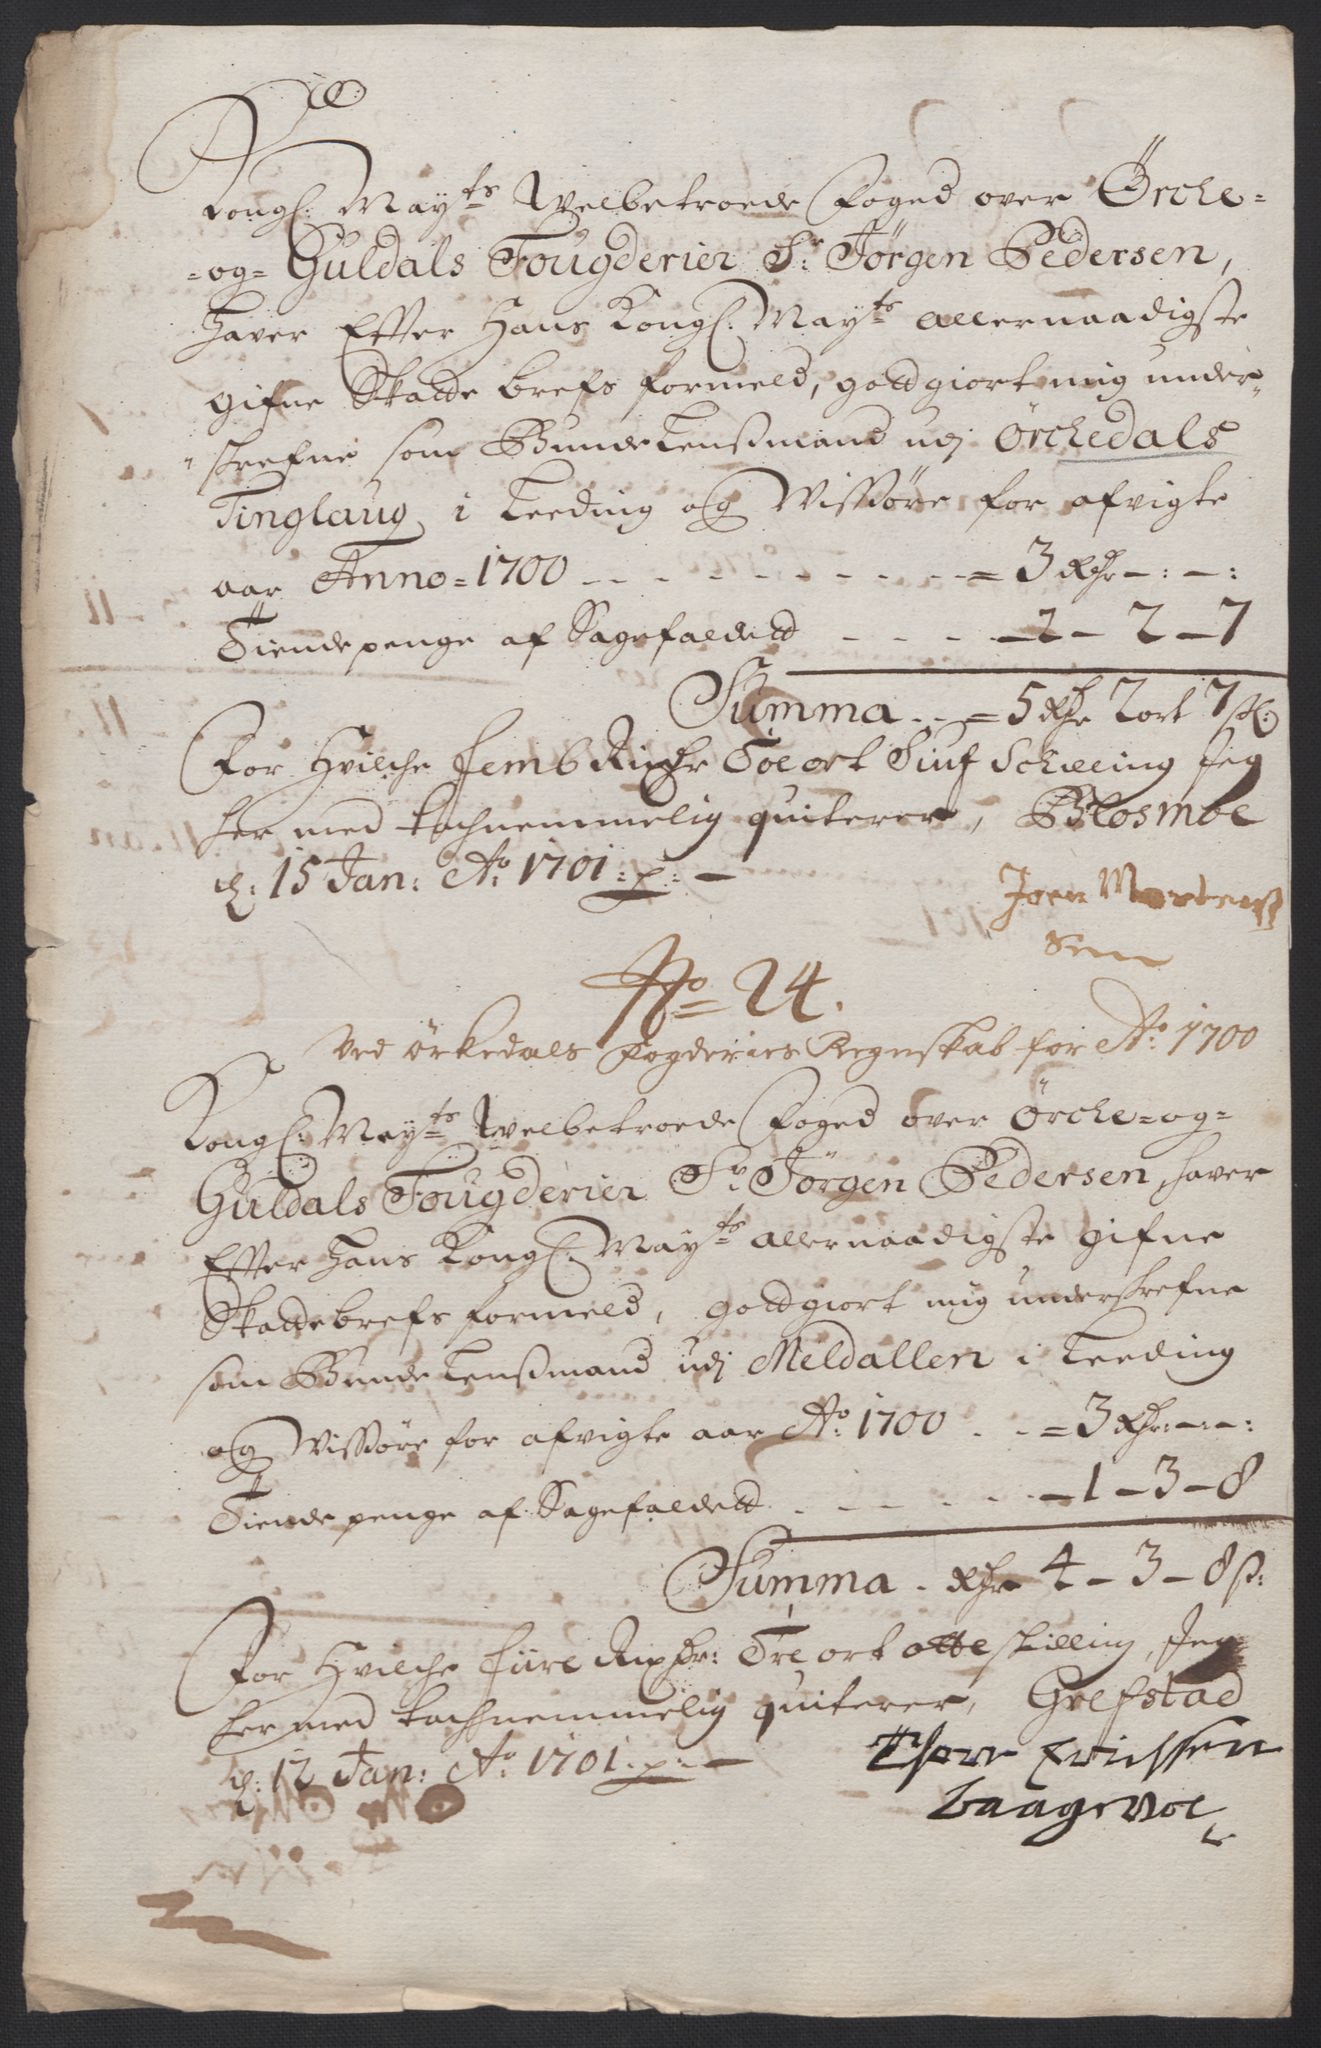 Kongl: Mayts Welbetroede Foged over Örche=
=og= Guldals Fougderier Sr Jörgen Pedersen,
Haver Efter Hans Kongl: Mayts allernaadigste
gifne Skatte brefs formeld, gottgiort mig under=
skrefne som Bunde Lenßmand udj Örchedals
Tinglaug, i Leeding og Wissöre for afvigte
aar Anno=1700 - - - - - - - - = 3 Rdr -:-:
Tiende penge af Sagefaldett - - - - 2 - 2 - 7
Summa - - = 5 Rdr 2 ort 7 sk:
For Hvilche femb Rixdr Toe ort Siuf Schilling Jeg
her med tachnemmelig quiterer, Blosmoe
d: 15 Jan: Ao 1701:
Joen Mortenß
Sen
No= 24.
Ved Örkedals Fogderies Regnskab for Ao: 1700
Kongl: Mayts Welbetroede Foged over Örche=og=
Guldals Fougderier Sr Jörgen Pedersen, haver
Efter Hans Kongl: Mayts allernaadigste gifne
Skattebrefs formeld, gottgiort mig underskrefne
som Bunde Lenßmand udj Meldallen i Leeding
og Wissöre for afvigte aar Ao: 1700 . . = 3 Rdr:-:-:
Tiende penge af Sagefaldett . - - - - - 1 - 3 - 8
Summa - Rdr 4 - 3 - 8 ß:
For Hvilche fiire Rixdr: Tre ort otte skilling, Jeg
her med tachnemmelig quiterer, Grefstad
d: 12 Jan: Ao 1701:
Thore Erichssen
baagevoe